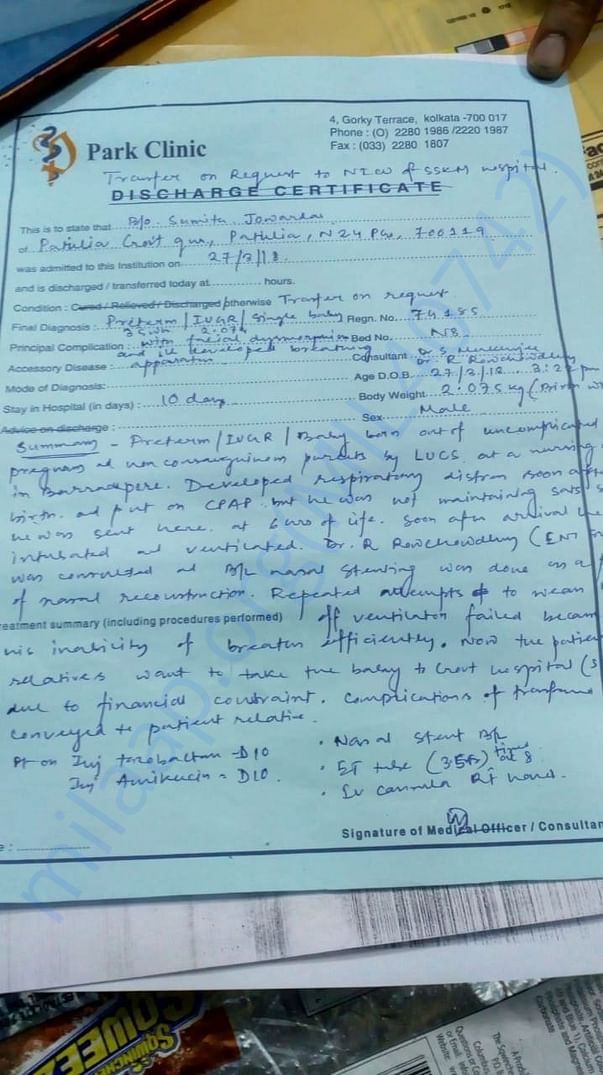 4, Gorky Terrace, kolkata -700 017
Phone : (O) 2280 1986 /2220 1987
Fax : (033) 2280 1807
Park Clinic
Transfer on Request to NICU of SSKM Hospital.
DISCHARGE CERTIFICATE
This is to state that B/o. Sumita
of Patulia Govt qur, Patulia, N24 PGs, 700119
was admitted to this Institution on 27/3/18.
and is discharged / transferred today at hours.
Condition : Cured / Relieved / Discharged / otherwise Transfer on request
Final Diagnosis : Preterm / IUGR / Single baby Regn. No. 74185
35 wk 2.074
Principal Complication : with facial dysmorphism Bed No. N8
and ill developed breathing
Accessory Disease : apparatus Consultant Dr S
Dr. R Rowchowdhury
Mode of Diagnosis: Age D.O.B. 27/3/18 3:22 pm
Stay in Hospital (in days) : 10 days Body Weight 2.075 kg (Birth
Advice on discharge : Sex Male
Summary - Preterm / IUGR / Baby born out of uncomplicated
pregnancy of non consanguineous parents by LUCS at a nursing
in Barrackpore. Developed respiratory distress soon after
birth and put on CPAP but he was not maintaining sats
he was sent here at 6 hrs of life. Soon after arrival he
intubated and ventilated. Dr. R Rowchowdhury (ENT
was consulted and B/L nasal stenting was done as a
of nasal reconstruction. Repeated attempts to wean
reatment summary (including procedures performed) off ventilator failed because
his inability of breath efficiently. Now the patient
relatives want to take the baby to Govt hospital (S
due to financial constraint. Complications of transfer
conveyed to patient relative.
Pt on Inj tazobactam - D10
Inj Amikacin - D10
• Nasal Stent B/L
• ET tube (3.5 fixed at 8
• Iv cannula Rt hand.
Signature of Medical Officer / Consultan
milaap.org(MIL467742)